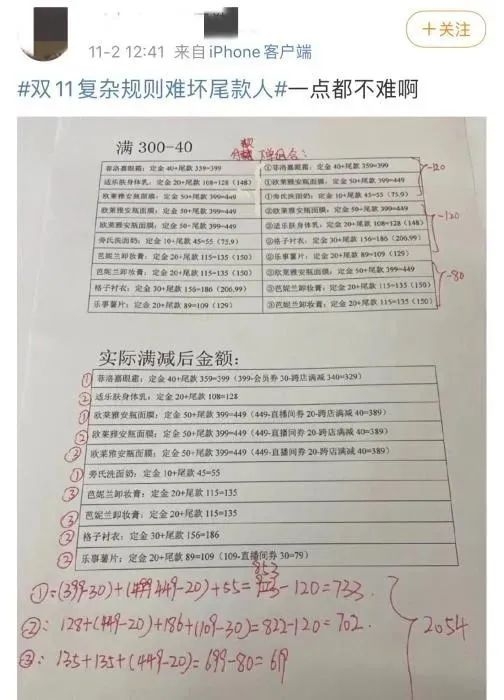 +关注
11-2 12:41 来自 iPhone客户端
#双11复杂规则难坏尾款人#一点都不难啊
满 300-40
下单组合:
菲洛嘉眼霜:定金 40+尾款 359=399 ①菲洛嘉眼霜:定金 40+尾款 359=399
适乐肤身体乳:定金 20+尾款 108=128(148) ①欧莱雅安瓶面膜:定金 50+尾款 399=449 -120
欧莱雅安瓶面膜:定金 50+尾款 399=449 ①旁氏洗面奶:定金 10+尾款 45=55(75.9)
欧莱雅安瓶面膜:定金 50+尾款 399=449 ②欧莱雅安瓶面膜:定金 50+尾款 399=449
欧莱雅安瓶面膜:定金 50+尾款 399=449 ②适乐肤身体乳:定金 20+尾款 108=128(148) -120
旁氏洗面奶:定金 10+尾款 45=55(75.9) ②格子衬衣:定金 30+尾款 156=186(206.99)
芭妮兰卸妆膏:定金 20+尾款 115=135(150) ②乐事薯片:定金 20+尾款 89=109(129)
芭妮兰卸妆膏:定金 20+尾款 115=135(150) ③欧莱雅安瓶面膜:定金 50+尾款 399=449 -80
格子衬衣:定金 30+尾款 156=186(206.99) ③芭妮兰卸妆膏:定金 20+尾款 115=135(150)
乐事薯片:定金 20+尾款 89=109(129) ③芭妮兰卸妆膏:定金 20+尾款 115=135(150)
实际满减后金额:
① 菲洛嘉眼霜:定金 40+尾款 359=399(399-会员券 30-跨店满减 340=329)
② 适乐肤身体乳:定金 20+尾款 108=128
① 欧莱雅安瓶面膜:定金 50+尾款 399=449(449-直播间券 20-跨店满减 40=389)
② 欧莱雅安瓶面膜:定金 50+尾款 399=449(449-直播间券 20-跨店满减 40=389)
③ 欧莱雅安瓶面膜:定金 50+尾款 399=449(449-直播间券 20-跨店满减 40=389)
① 旁氏洗面奶:定金 10+尾款 45=55
③ 芭妮兰卸妆膏:定金 20+尾款 115=135
③ 芭妮兰卸妆膏:定金 20+尾款 115=135
② 格子衬衣:定金 30+尾款 156=186
② 乐事薯片:定金 20+尾款 89=109(109-直播间券 30=79)
①=(399-30)+(449-20)+55=853-120=733.
②:128+(449-20)+186+(109-30)=822-120=702. 2054
③:135+135+(449-20)=699-80=619